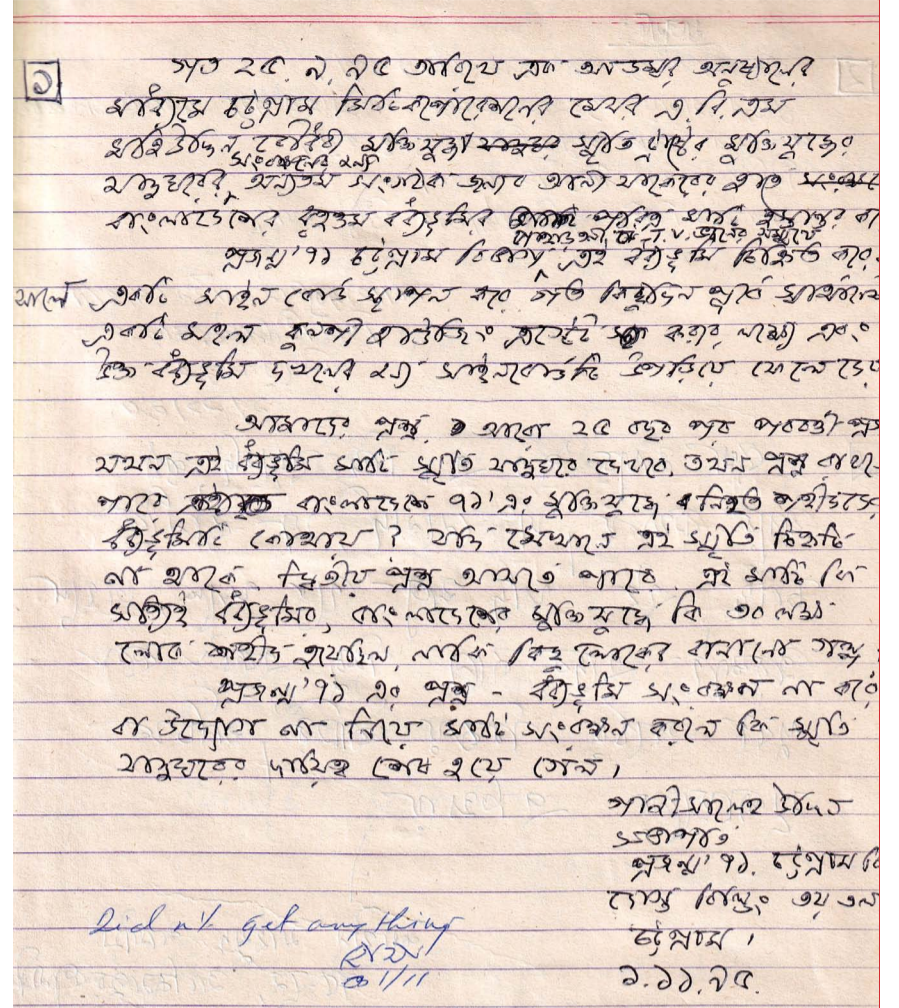 ১
গত ২৫. ৯. ৯৫ তারিখে এক অনাড়ম্বর অনুষ্ঠানের
মাধ্যমে চট্টগ্রাম সিটি কর্পোরেশনের মেয়র এ. বি. এম
মহিউদ্দিন চৌধুরী মুক্তিযুদ্ধ যাদুঘর স্মৃতি ট্রাষ্টের মুক্তিযুদ্ধের
সংরক্ষনের জন্য
যাদুঘরের, অন্যতম সংগঠক জনাব আলী যাকেরের হাতে
বাংলাদেশের বৃহত্তম বধ্যভূমির পবিত্র মাটি হস্তান্তর
পাহাড়তলী, T.V. ভবনের সম্মুখে
প্রজন্ম' ৭১ চট্টগ্রাম বিভাগ এই বধ্যভূমি চিহ্নিত করে
সালে একটি সাইন বোর্ড স্থাপন করে গত কিছুদিন পূর্বে
একটি মহল হাউজিং এস্টেট করার লক্ষ্যে এবং
উক্ত বধ্যভূমি দখলের জন্য সাইনবোর্ডটি উপড়িয়ে ফেলে
আমাদের প্রশ্ন, আরো ২৫ বছর পর পরবর্তী
যখন এই বধ্যভূমি মাটি স্মৃতি যাদুঘরে দেখবে, তখন প্রশ্ন
পারে বাংলাদেশে ৭১' এর মুক্তি যুদ্ধে নিহত
বধ্যভূমিটি কোথায়? যদি সেখানে এই স্মৃতি চিহ্নটি
না থাকে দ্বিতীয় প্রশ্ন আসতে পারে এই মাটি কি
সত্যিই বধ্যভূমির, বাংলাদেশের মুক্তি যুদ্ধে কি ৩০ লক্ষ
লোক শহীদ হয়েছিল, নাকি কিছু লোকের বানানো গল্প
প্রজন্ম' ৭১ এর প্রশ্ন - বধ্যভূমি সংরক্ষন না করে
বা উদ্যোগ না নিয়ে মাটি সংরক্ষন করলে কি স্মৃতি
যাদুঘরের দায়িত্ব শেষ হয়ে গেল।
গাজী সালেহ উদ্দিন
সভাপতি
প্রজন্ম' ৭১. চট্টগ্রাম
বিল্ডিং ৩য়
চট্টগ্রাম।
১. ১১. ৯৫.
Did n't get anything
১/১১